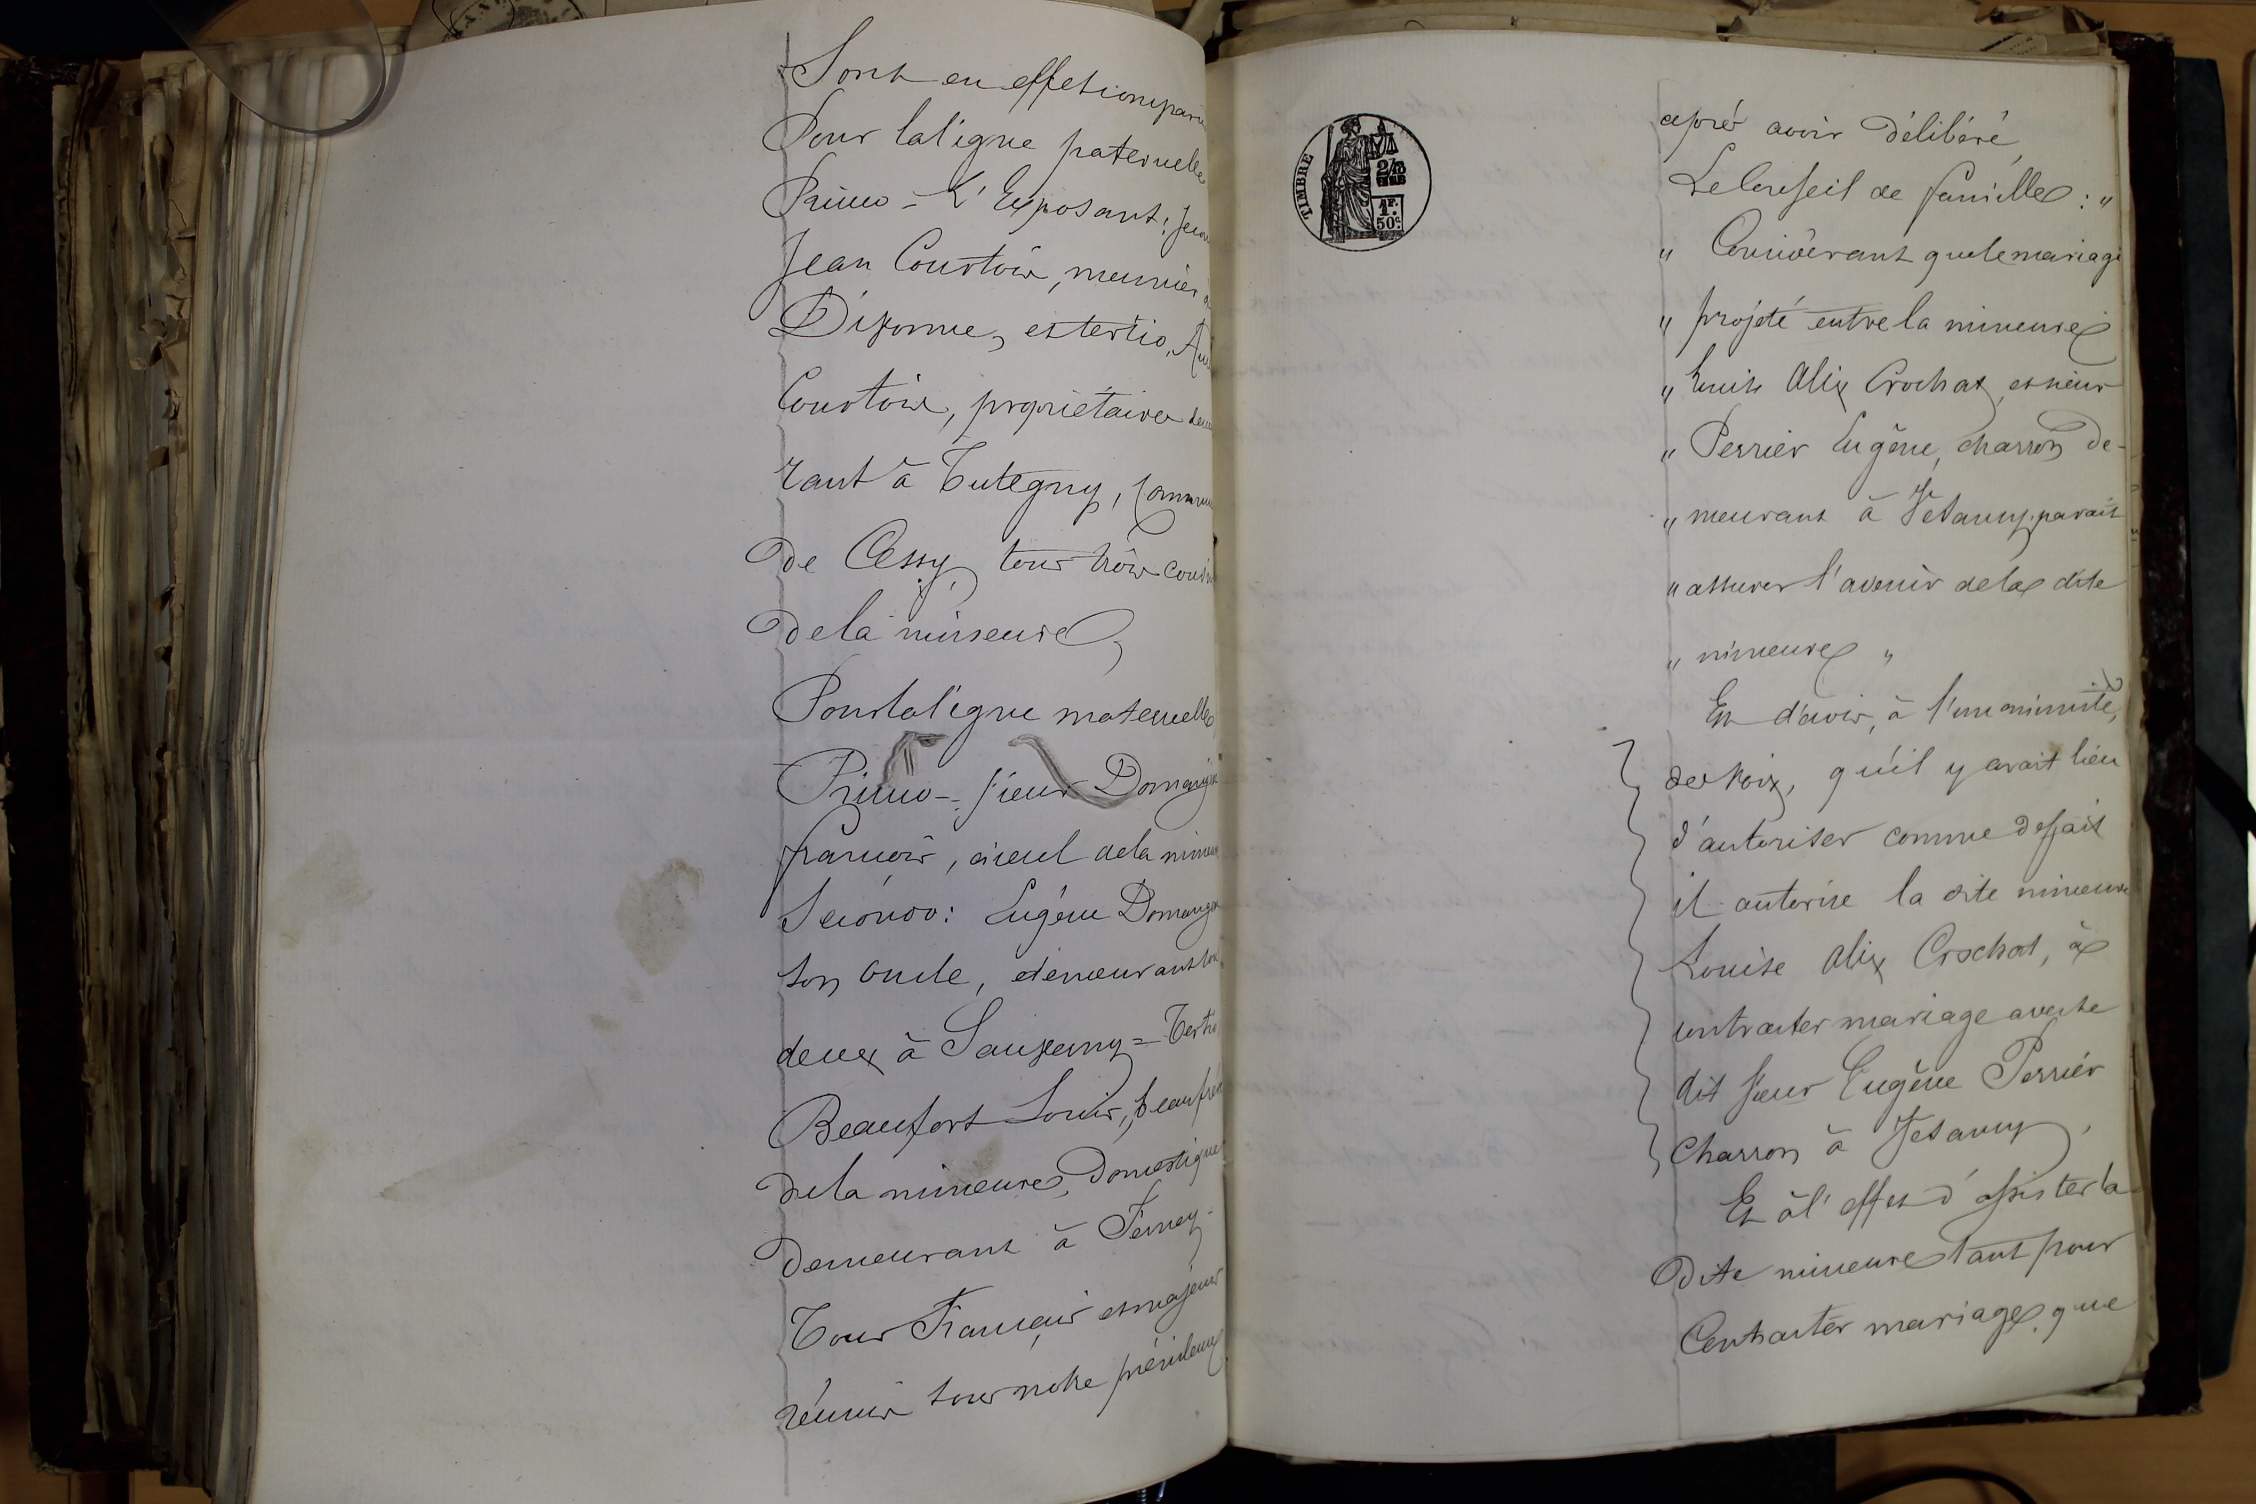 Sont en effet compar
Pour la ligne paternelle
Primo = L'Exposant; secun
Jean Courtois, meunier
Divonne, et tertio,
Courtois, propriétaire demeu
rant à Tutegny, Commun
de Cessy, tous trois cousin
de la mineure,
Pour la ligne maternelle
Primo = sieur Domange
françois, aïeul de la mineu
Secondo: Eugène Domange
son oncle, demeurant tous
deux à Sauverny = Tertio
Beaufort Louis, beau frère
de la mineure, Domestique
demeurant à Ferney.
Tous Français et majeurs
réunis sous notre présidence
TIMBRE
1F.
50c.
après avoir délibéré,
Le Conseil de famille: "
" Considérant que le mariage
" projeté entre la mineure
" Louise Alix Crochat, et sieur
" Perrier Eugène, charron de-
" meurant à Versonnex parait
" assurer l'avenir de la dite
" mineure "
Est d'avis, à l'unanimité,
des voix, qu'il y avait lieu
d'autoriser comme de fait
il autorise la dite mineure
Louise Alix Crochat, à
contracter mariage avec le
dit sieur Eugène Perrier
Charron à
Et à l'effet d'assister la
Dite mineure tant pour
Contracter mariage que